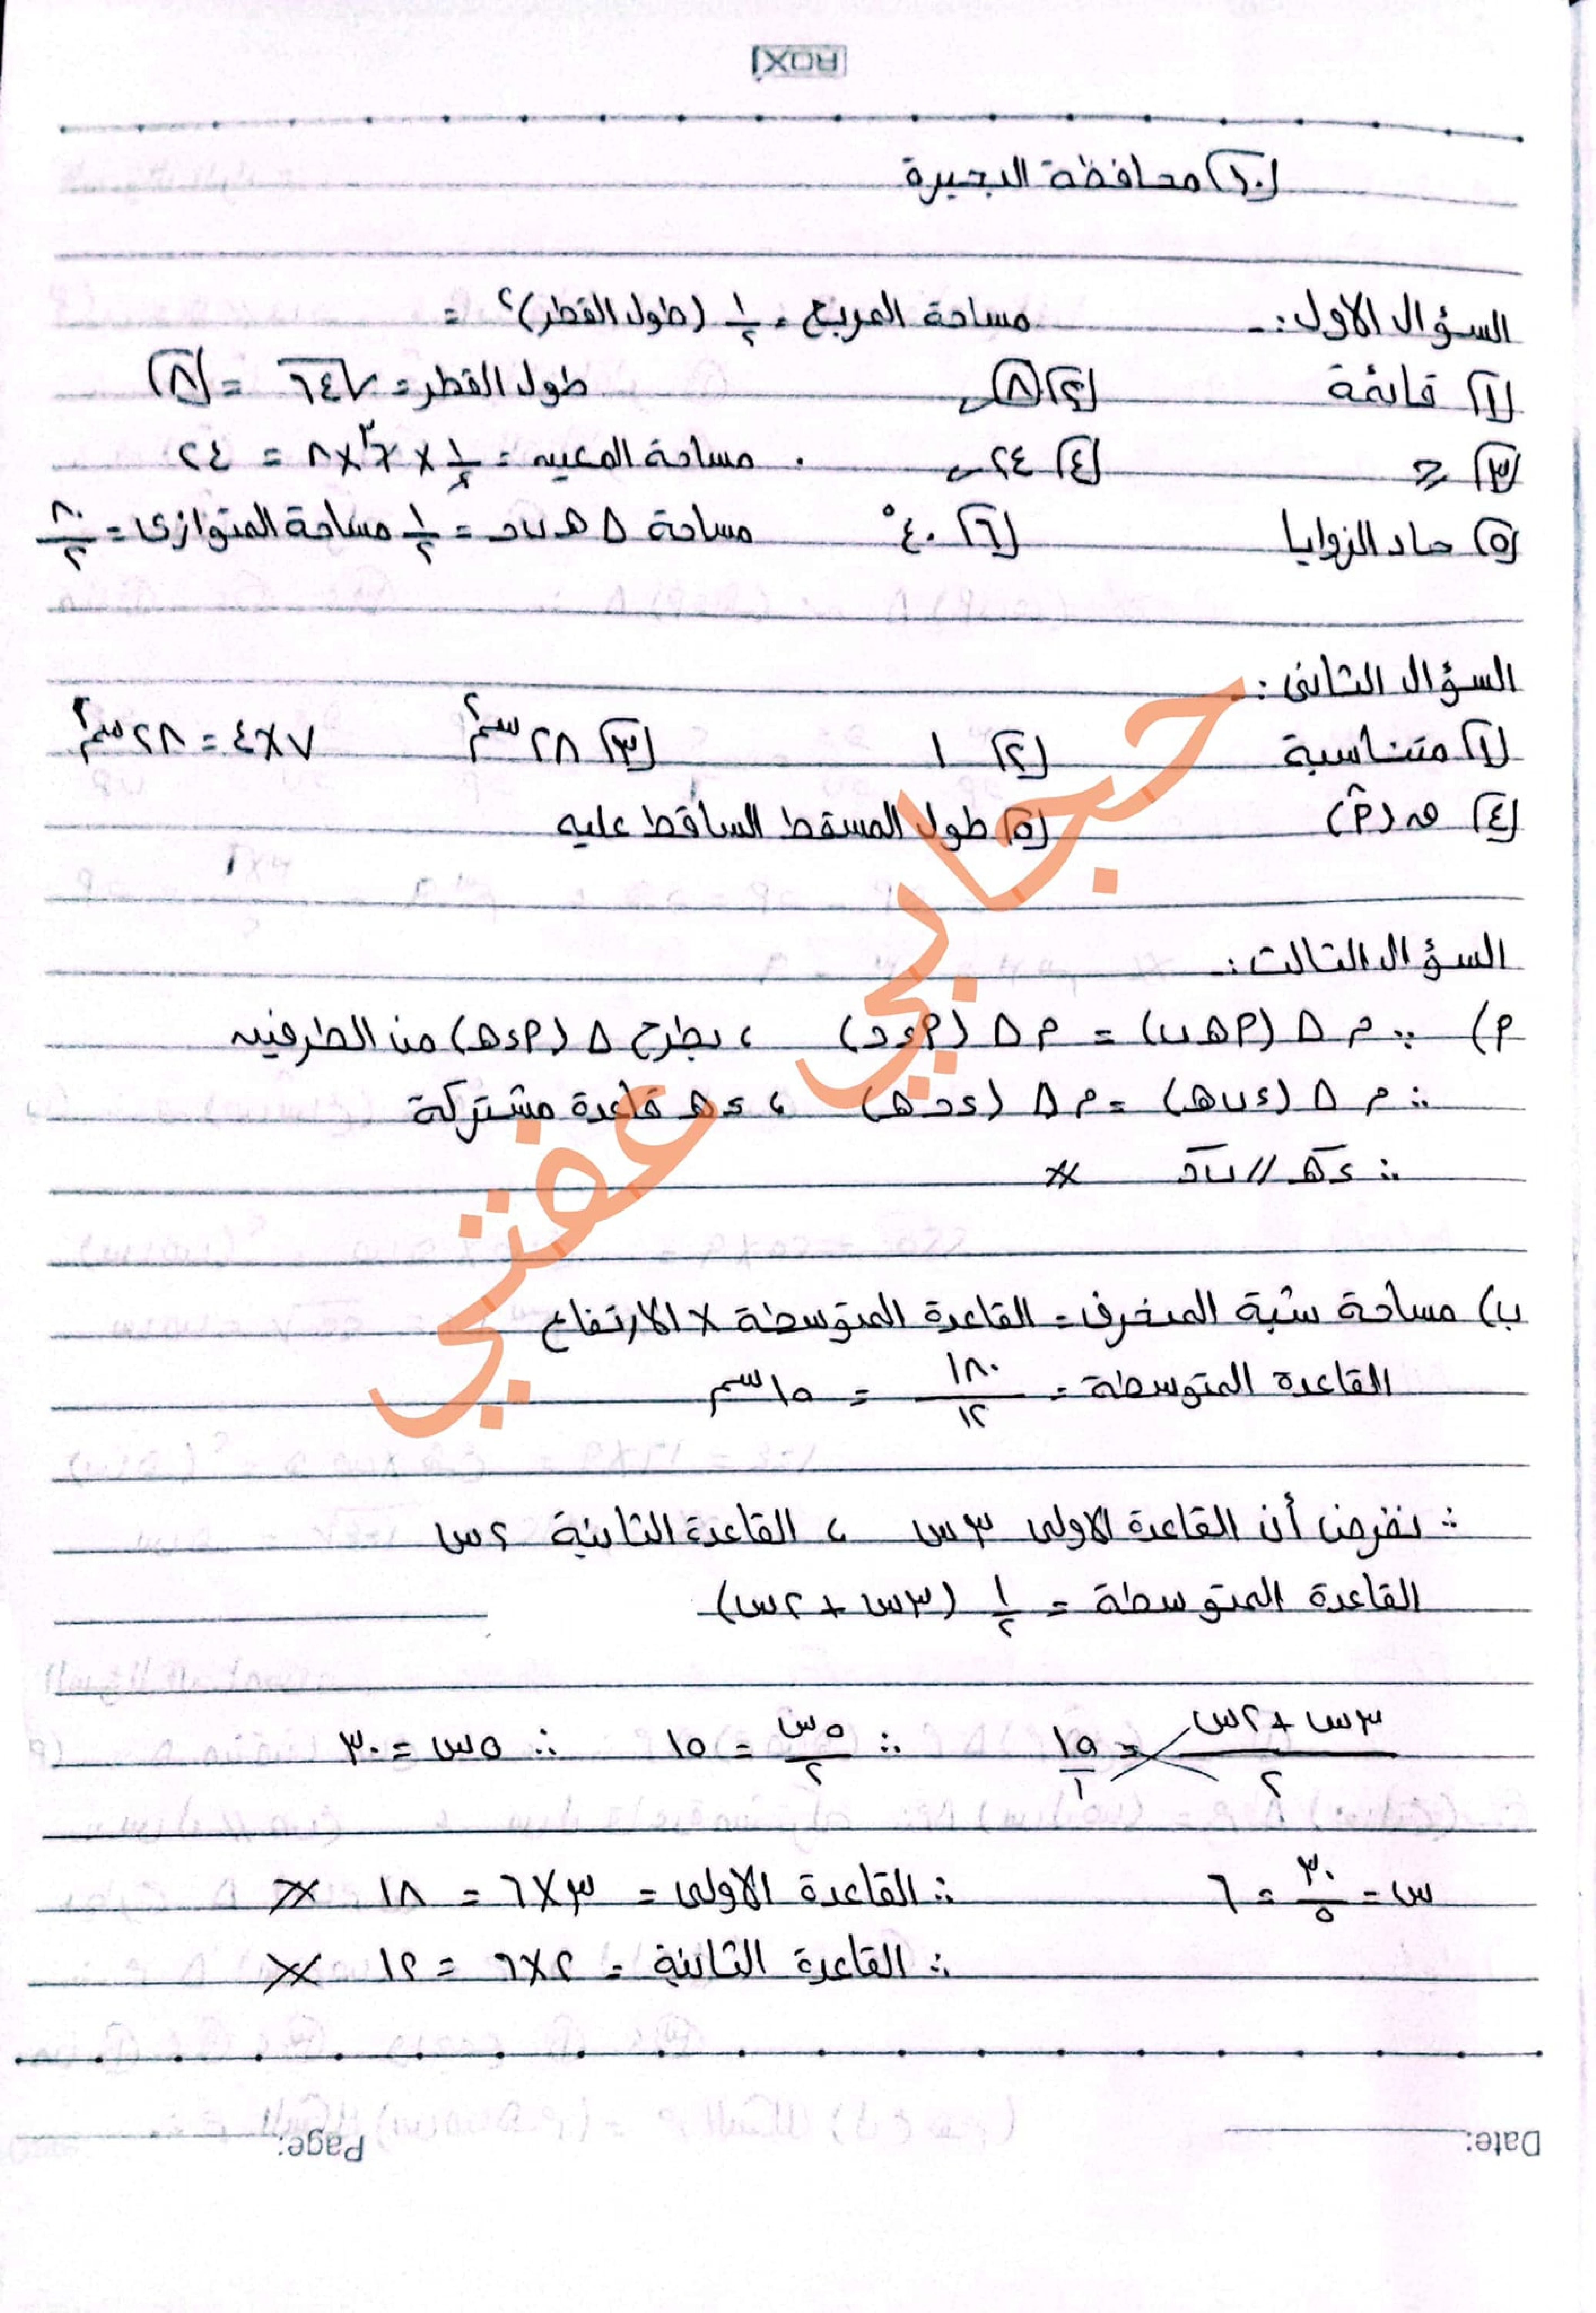 ROXI
١٠) محافظة البحيرة
السؤال الأول :- مساحة المربع = ١/٢ (طول القطر)٢ =
١) قائمة ٢) ٨ طول القطر = √٦٤ = ٨
٣) ≥ ٤) ٢٤ مساحة المعين = ١/٢ × ٦ × ٨ = ٢٤
٥) حاد الزوايا ٦) ٤٠° مساحة Δ هـ ب د = ١/٢ مساحة المتوازى = ٨٠/٢
السؤال الثانى :-
١) متناسبة ٢) ١ ٣) ٢٨ سم٢ ٧×٤ = ٢٨ سم٢
٤) ق (أ) ٥) طول المسقط الساقط عليه
السؤال التالت :-
أ) ∵ م Δ (أ هـ ب) = م Δ (أ ء د) ، بطرح Δ (أ ء هـ) من الطرفين
∴ م Δ (ء ب هـ) = م Δ (ء د هـ) ، ء هـ قاعدة مشتركة
∴ ء هـ // ب د
ب) مساحة شبة المنحرف = القاعدة المتوسطة × الارتفاع
القاعدة المتوسطة = ١٨٠/١٢ = ١٥ سم
∴ نفرض أن القاعدة الاولى ٣س ، القاعدة الثانية ٢س
القاعدة المتوسطة = ١/٢ (٣س + ٢س)
٣س + ٢س/٢ = ١٥/١ ∴ ٥س/٢ = ١٥ ∴ ٥س = ٣٠
س = ٣٠/٥ = ٦ ∴ القاعدة الاولى = ٣×٦ = ١٨
∴ القاعدة الثانية = ٢×٦ = ١٢
حجابي عفتي
Date: Page: